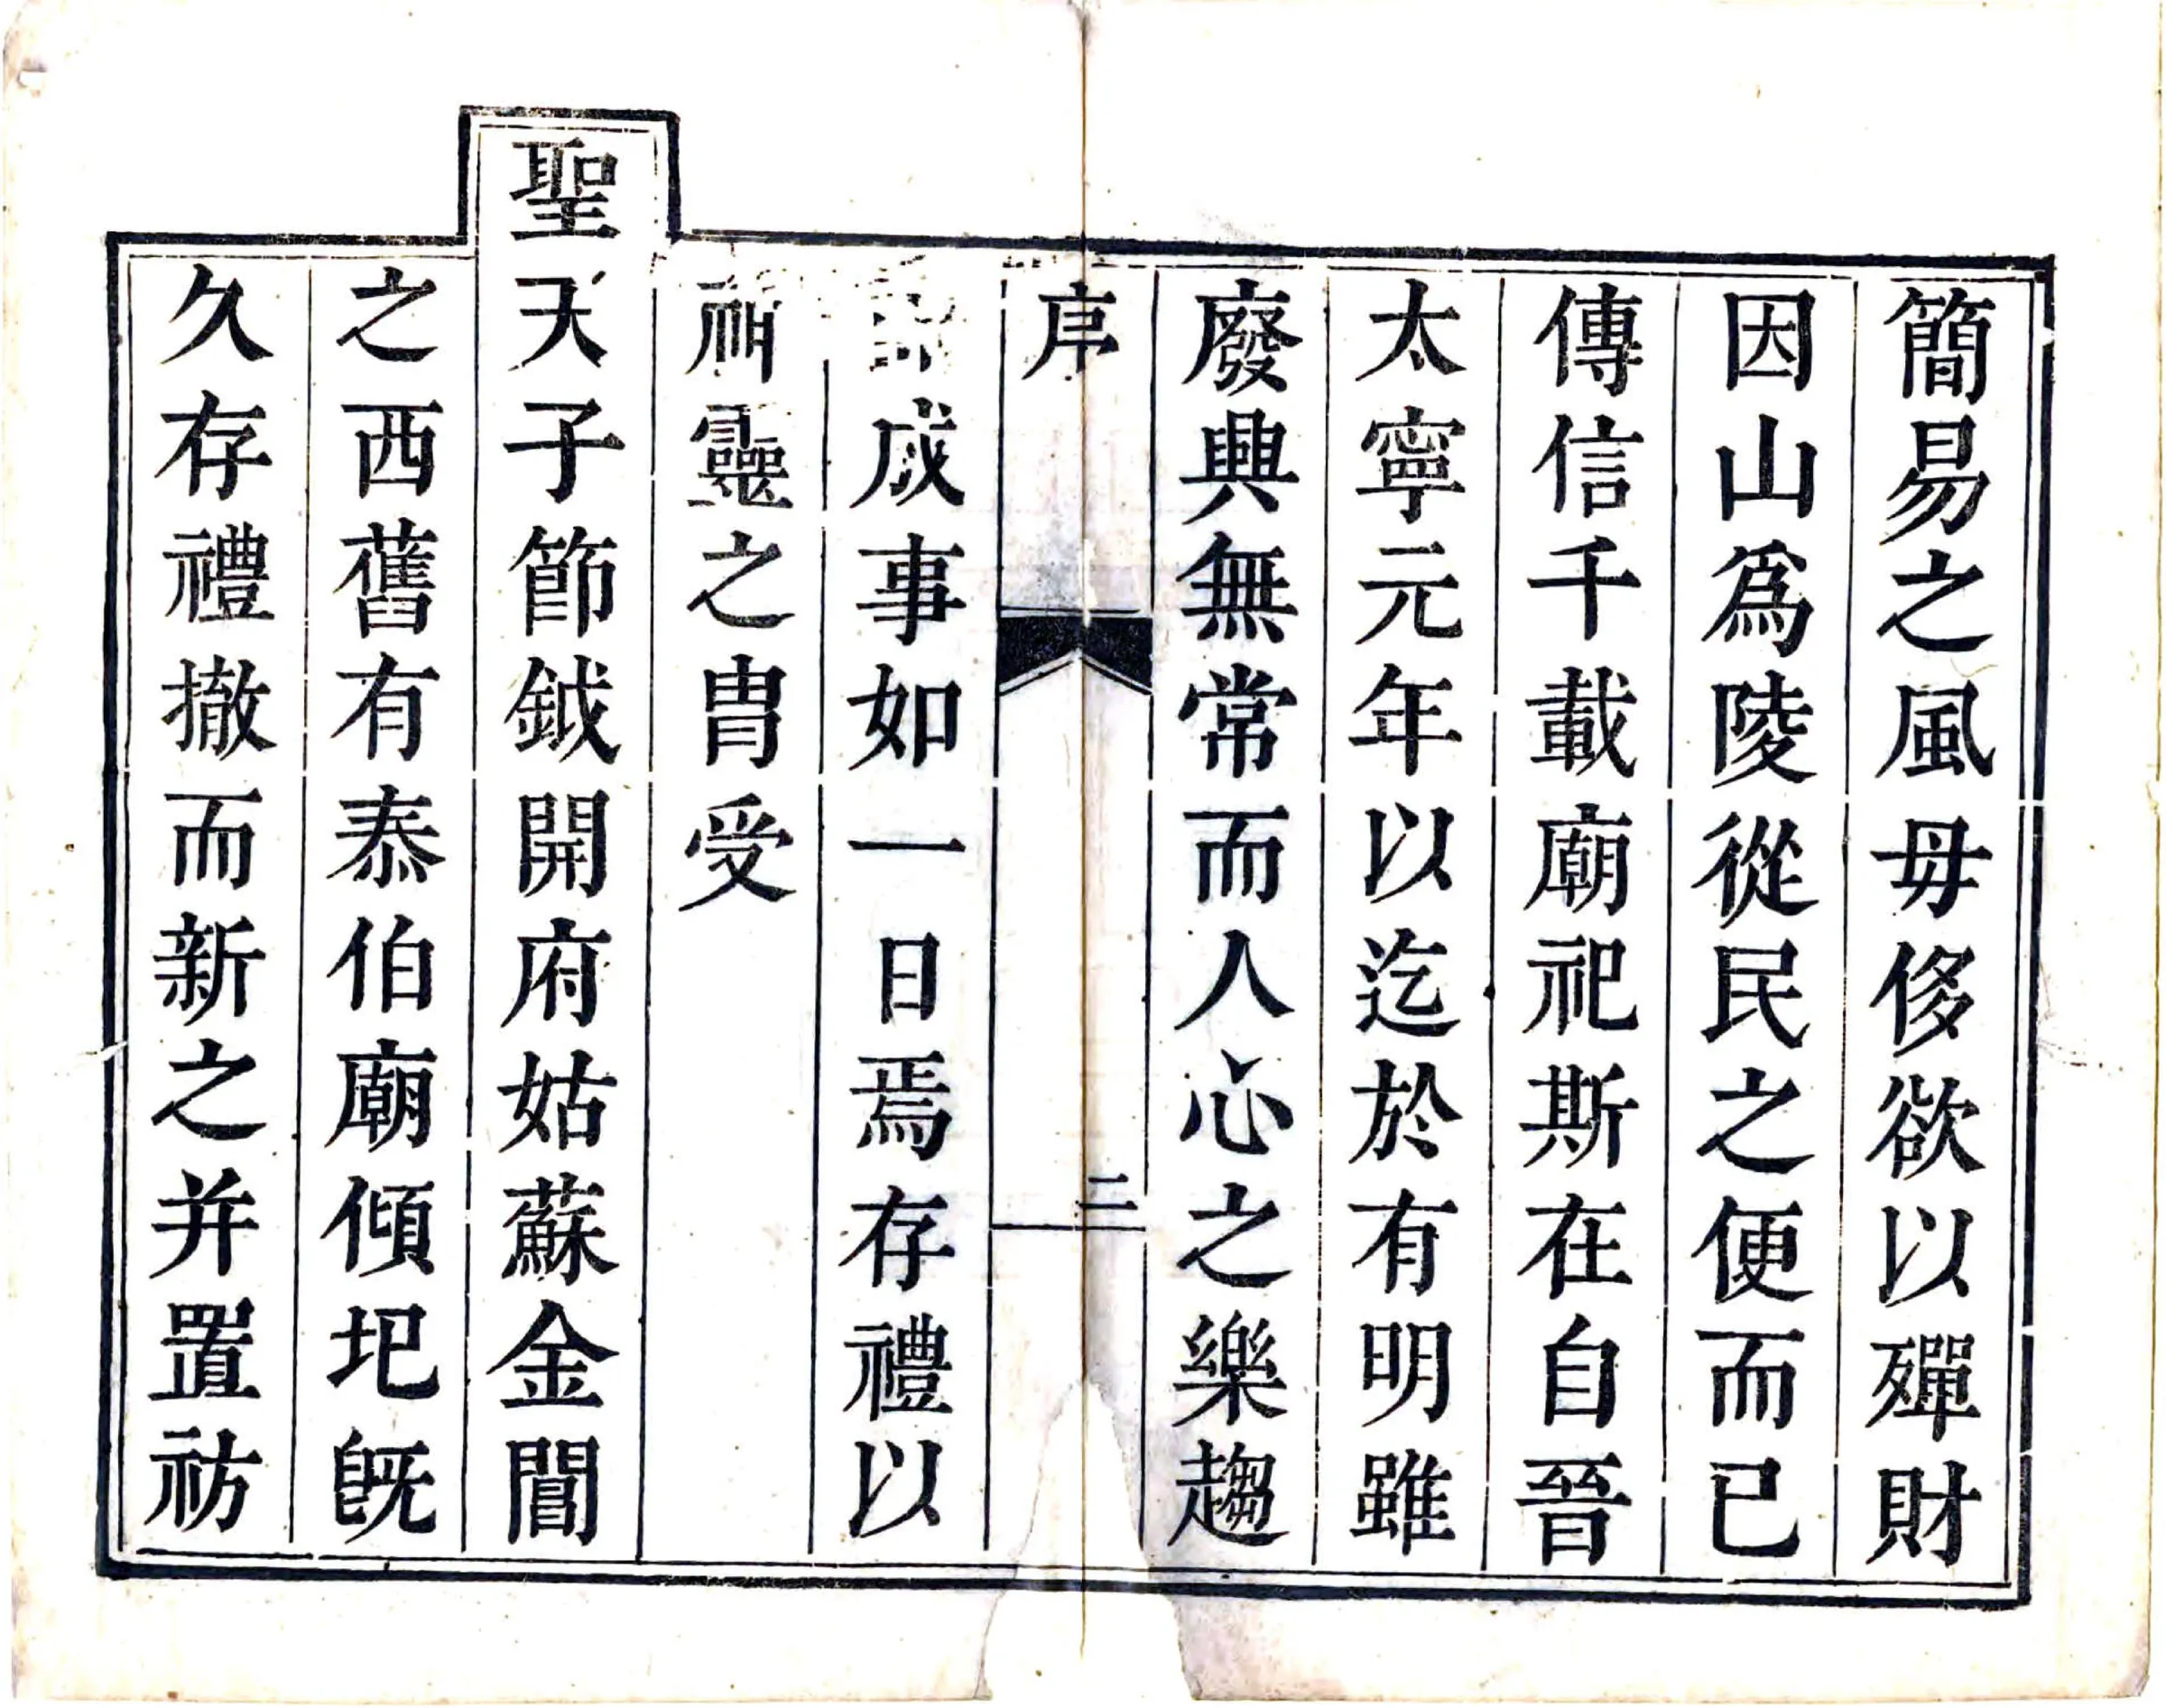 簡易之風毋侈欲以殫財
因山爲陵從民之便而已
傳信千載廟祀斯在自晉
太寧元年以迄於有明雖
廢興無常而人心之樂趨
序
二
成事如一日焉存禮以
神靈之胄受
聖天子節鉞開府姑蘇金閶
之西舊有泰伯廟傾圮旣
久存禮撤而新之并置祊